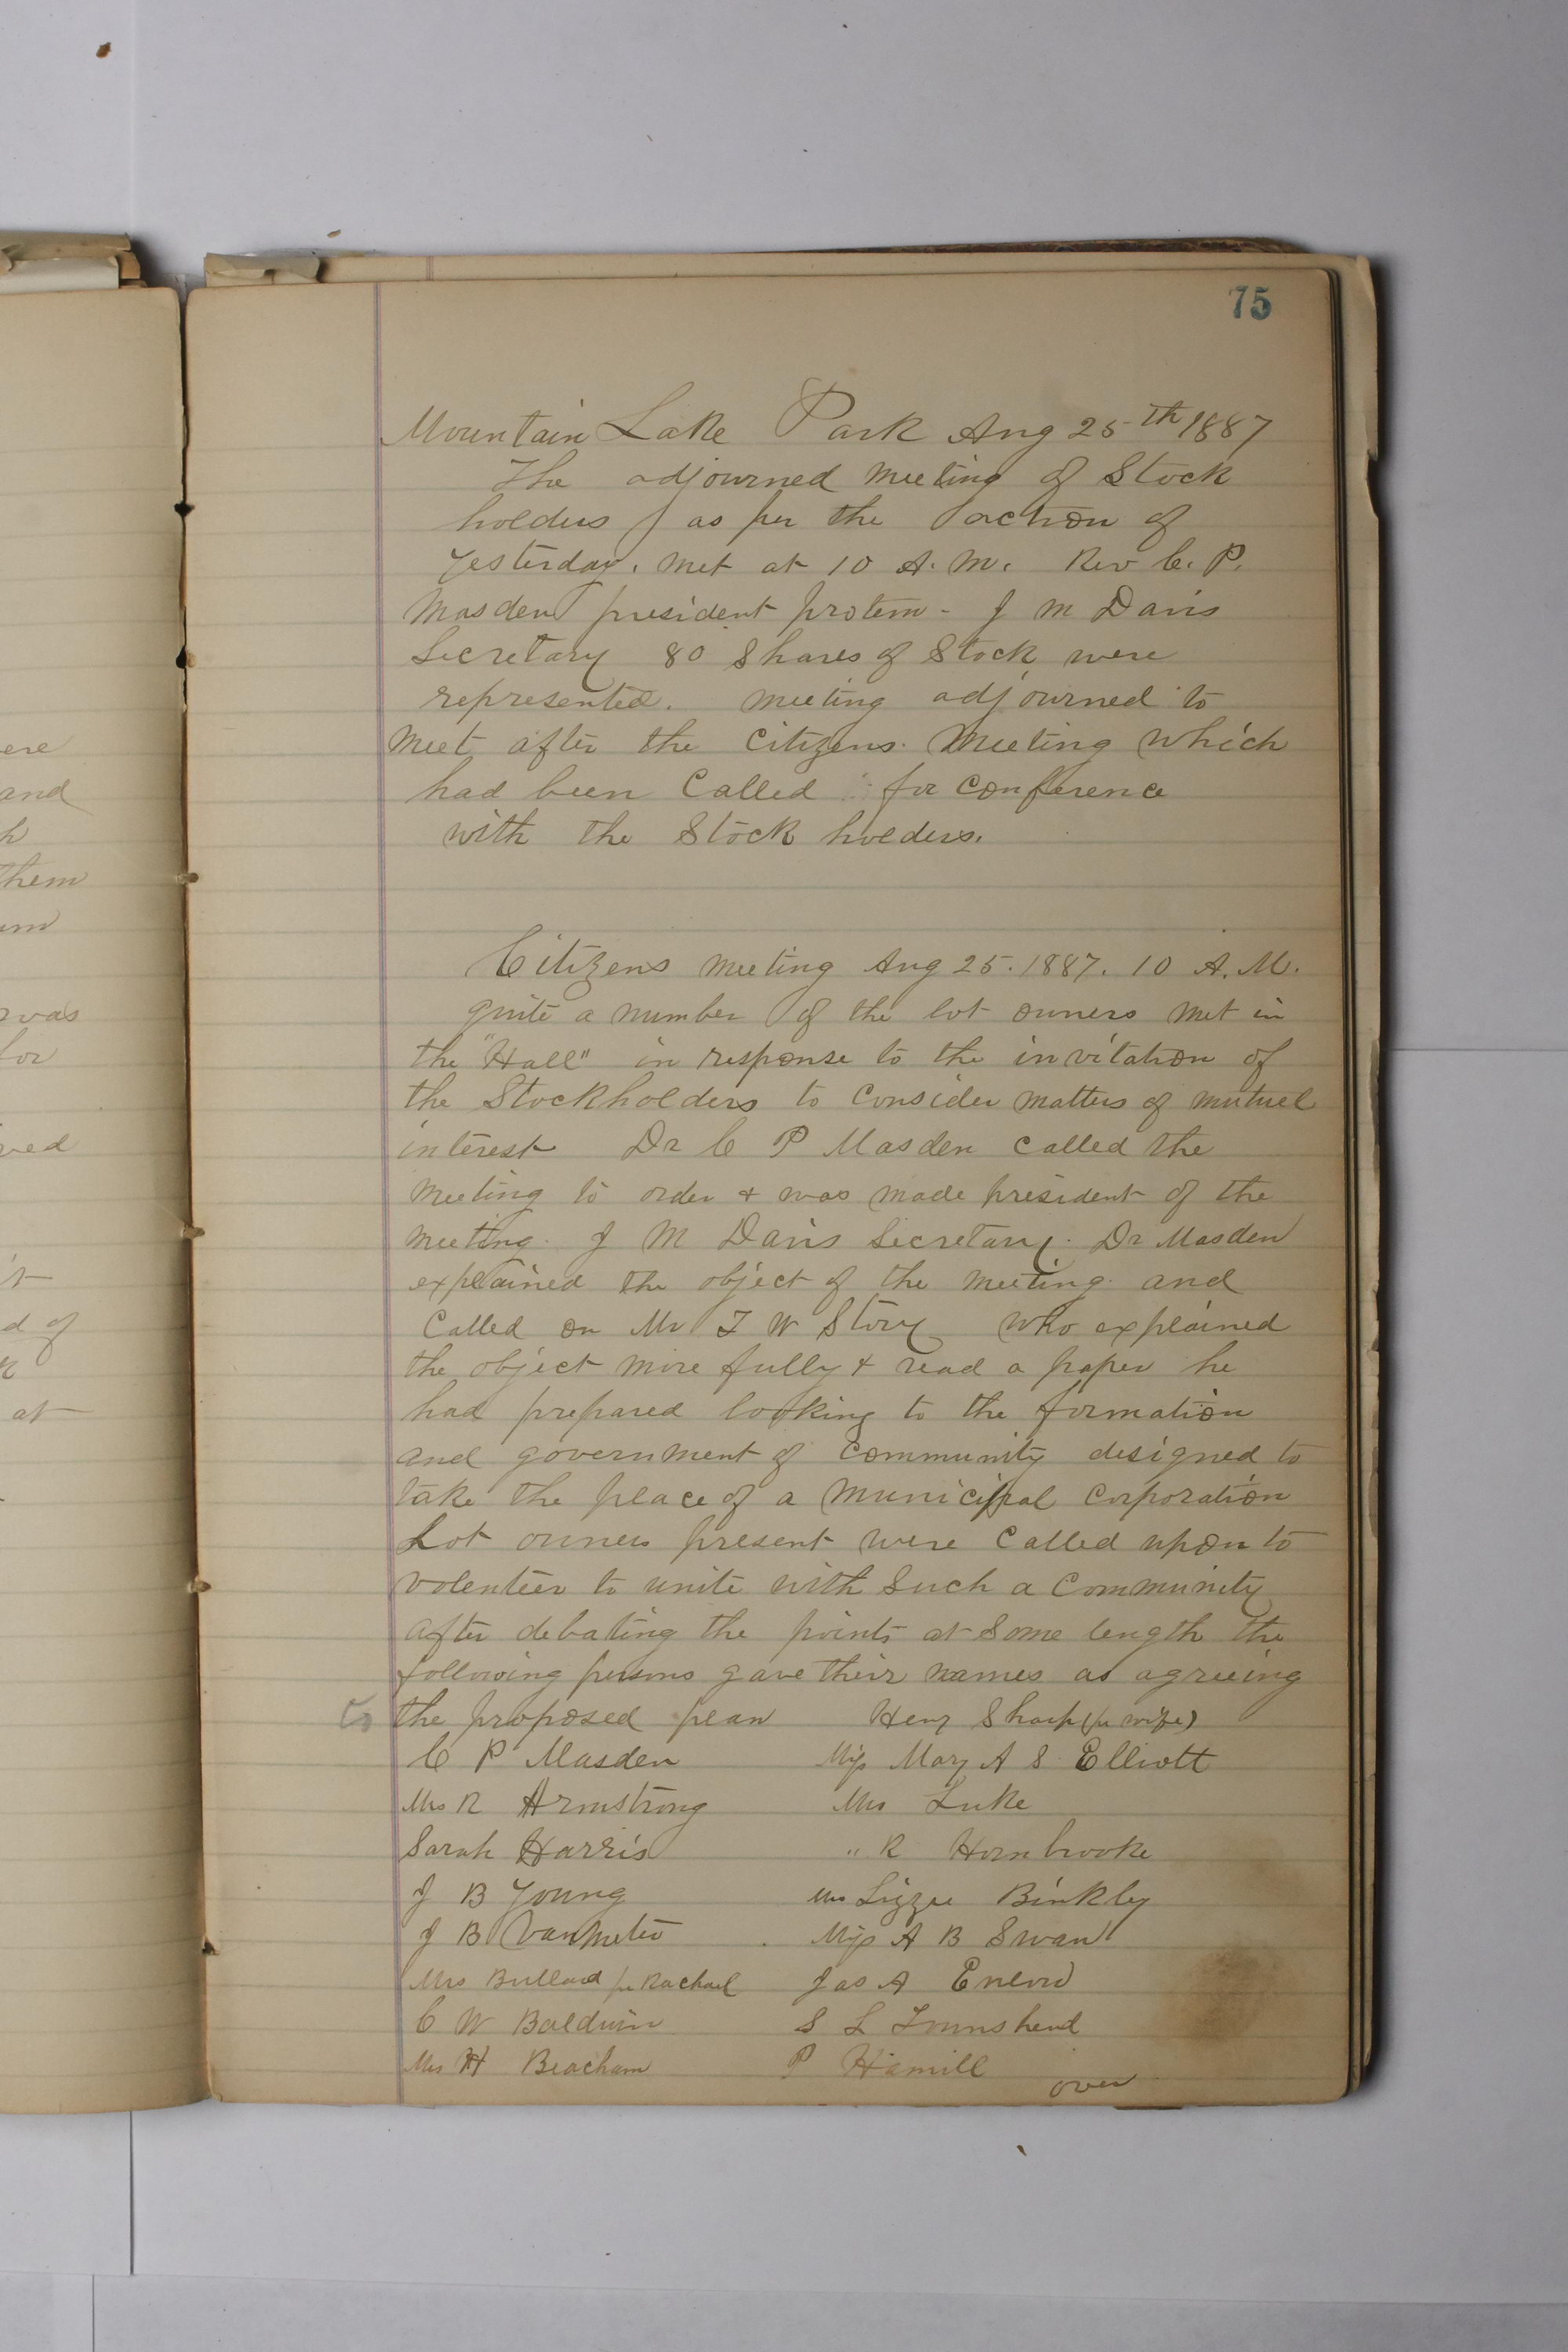 75
Mountain Lake Park Aug 25th 1887
The adjourned meeting of Stock
holders as per the action of
yesterday. met at 10 A. M. Rev C. P.
Masden president protem - J M Davis
Secretary 80 Shares of Stock were
represented. meeting adjourned to
meet after the Citizens meeting which
had been Called for Conference
with the Stock holders.
Citizens meeting Aug 25. 1887. 10 A. M.
quite a number of the lot owners met in
the "Hall" in response to the invitation of
the Stockholders to Consider matters of mutuel
interest Dr C P Masden Called the
meeting to order & was made president of the
meeting. J M Davis Secretary. Dr Masden
explained the object of the meeting and
Called on Mr I W Story who explained
the object more fully & read a paper he
had prepared looking to the formation
and government of Community designed to
take the place of a Municipal Corporation
Lot owners present were Called upon to
volenteer to unite with Such a Community
after debating the points at Some length the
following persons gave their names as agreeing
to the proposed plan Heny Sharp (per wife)
C P Masden Miss Mary A S Elliott
Mrs R Armstrong Mrs Luke
Sarah Harris " R Hornbrooke
J B Young Mrs Lizzie Binkley
J B VanMeter Miss A B Swan
Mrs Bullard per Rachael Jas A
C W Baldwin S L Townshend
Mrs H Beacham P Hamill
over
ere
and
h
them
um
was
for
ved
it
d of
at